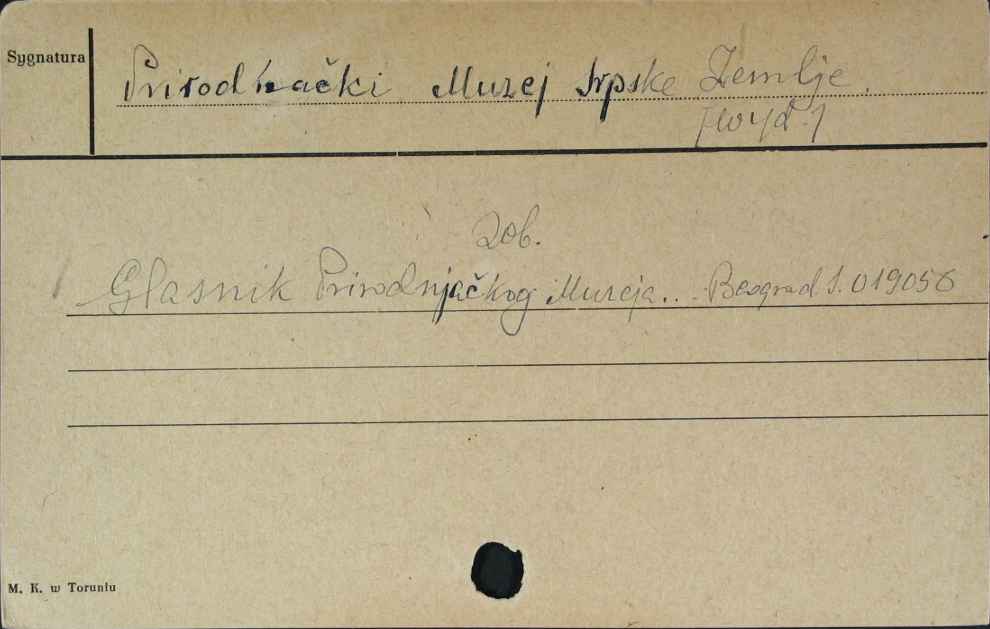 Sygnatura
Prirodnački Muzej Srpske Zemlje.
[wyd.]
zob.
Glasnik Prirodnjačkog Muzeja... Beograd S. 019056
M. K. w Toruniu